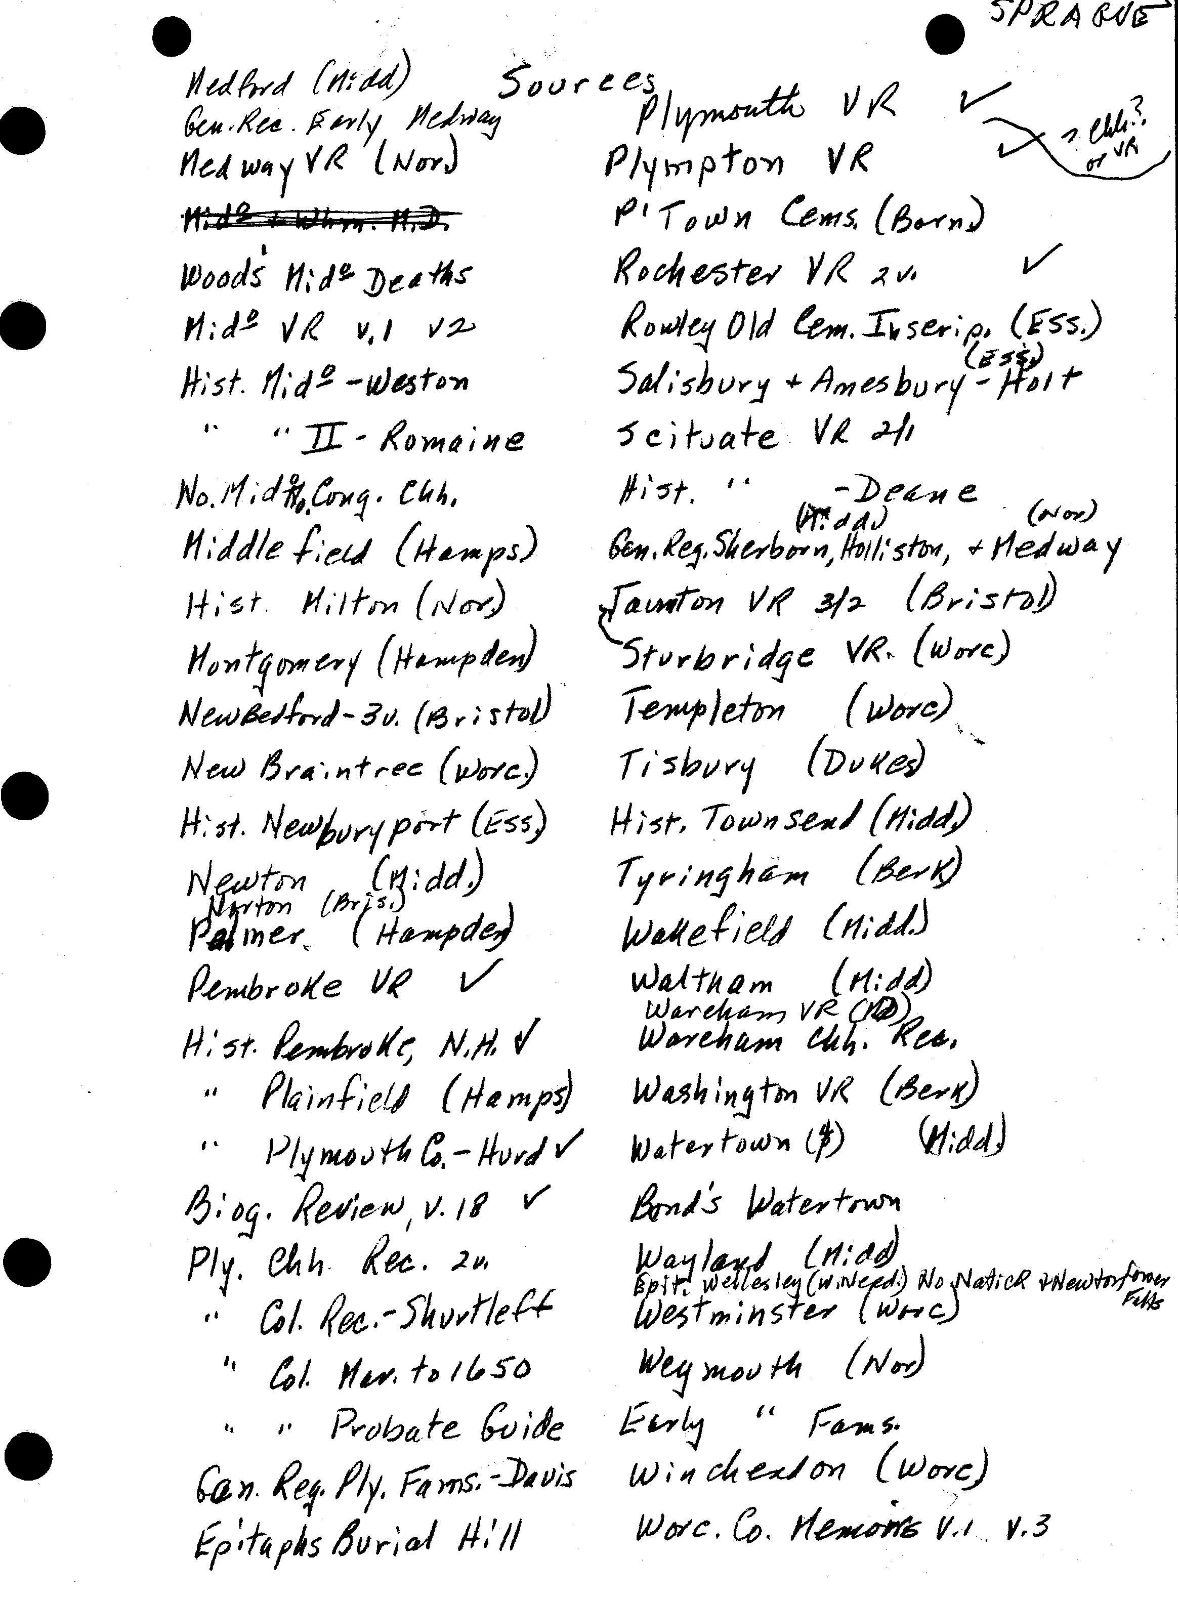 SPRAGUE
Sources
Medford (Midd)
Gen. Rec. Early Medway
Medway VR (Nor)
Midº + Whm. M.D.
Wood's Midº Deaths
Midº VR v.1 v2
Hist. Midº - Weston
" " II - Romaine
No. Midº Cong. Chh.
Middlefield (Hamps)
Hist. Milton (Nor)
Montgomery (Hampden)
New Bedford - 3v. (Bristol)
New Braintree (Worc.)
Hist. Newburyport (Ess.)
Newton (Midd.)
Norton (Bris.)
Palmer. (Hampden)
Pembroke VR ✓
Hist. Pembroke, N.H. ✓
" Plainfield (Hamps)
" Plymouth Co. - Hurd ✓
Biog. Review, v.18 ✓
Ply. Chh. Rec. 2v.
" Col. Rec. - Shurtleff
" Col. Mar. to 1650
" " Probate Guide
Gen. Reg. Ply. Fams. - Davis
Epitaphs Burial Hill
Plymouth VR ✓
? Chh?
or VR
Plympton VR ✓
P'Town Cems. (Barn.)
Rochester VR 2v. ✓
Rowley Old Cem. Inscrip. (Ess.)
(Ess.)
Salisbury + Amesbury - Hoyt
Scituate VR 2/1
Hist. " - Deane
(Midd.) (Nor)
Gen. Reg. Sherborn, Holliston, + Medway
Taunton VR 3/2 (Bristol)
Sturbridge VR. (Worc)
Templeton (Worc)
Tisbury (Dukes)
Hist. Townsend (Midd.)
Tyringham (Berk)
Wakefield (Midd.)
Waltham (Midd)
Wareham VR
Wareham Chh. Rec.
Washington VR (Berk)
Watertown (4) (Midd.)
Bond's Watertown
Wayland (Midd)
Epit. Wellesley (W. Need.) No. Natick + Newton Lower
Falls
Westminster (Worc)
Weymouth (Nor)
Early " Fams.
Winchendon (Worc)
Worc. Co. Memoirs v.1 v.3